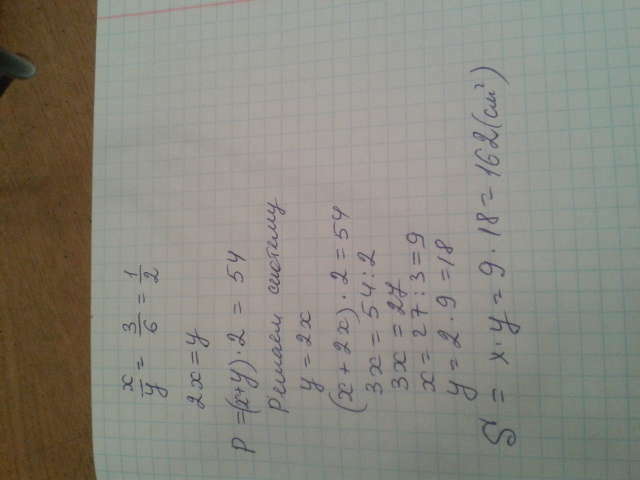 x/y = 3/6 = 1/2
2x = y
P = (x+y) · 2 = 54
Решаем систему
y = 2x
(x + 2x) · 2 = 54
3x = 54 : 2
3x = 27
x = 27 : 3 = 9
y = 2 · 9 = 18
S = x · y = 9 · 18 = 162 (см²)